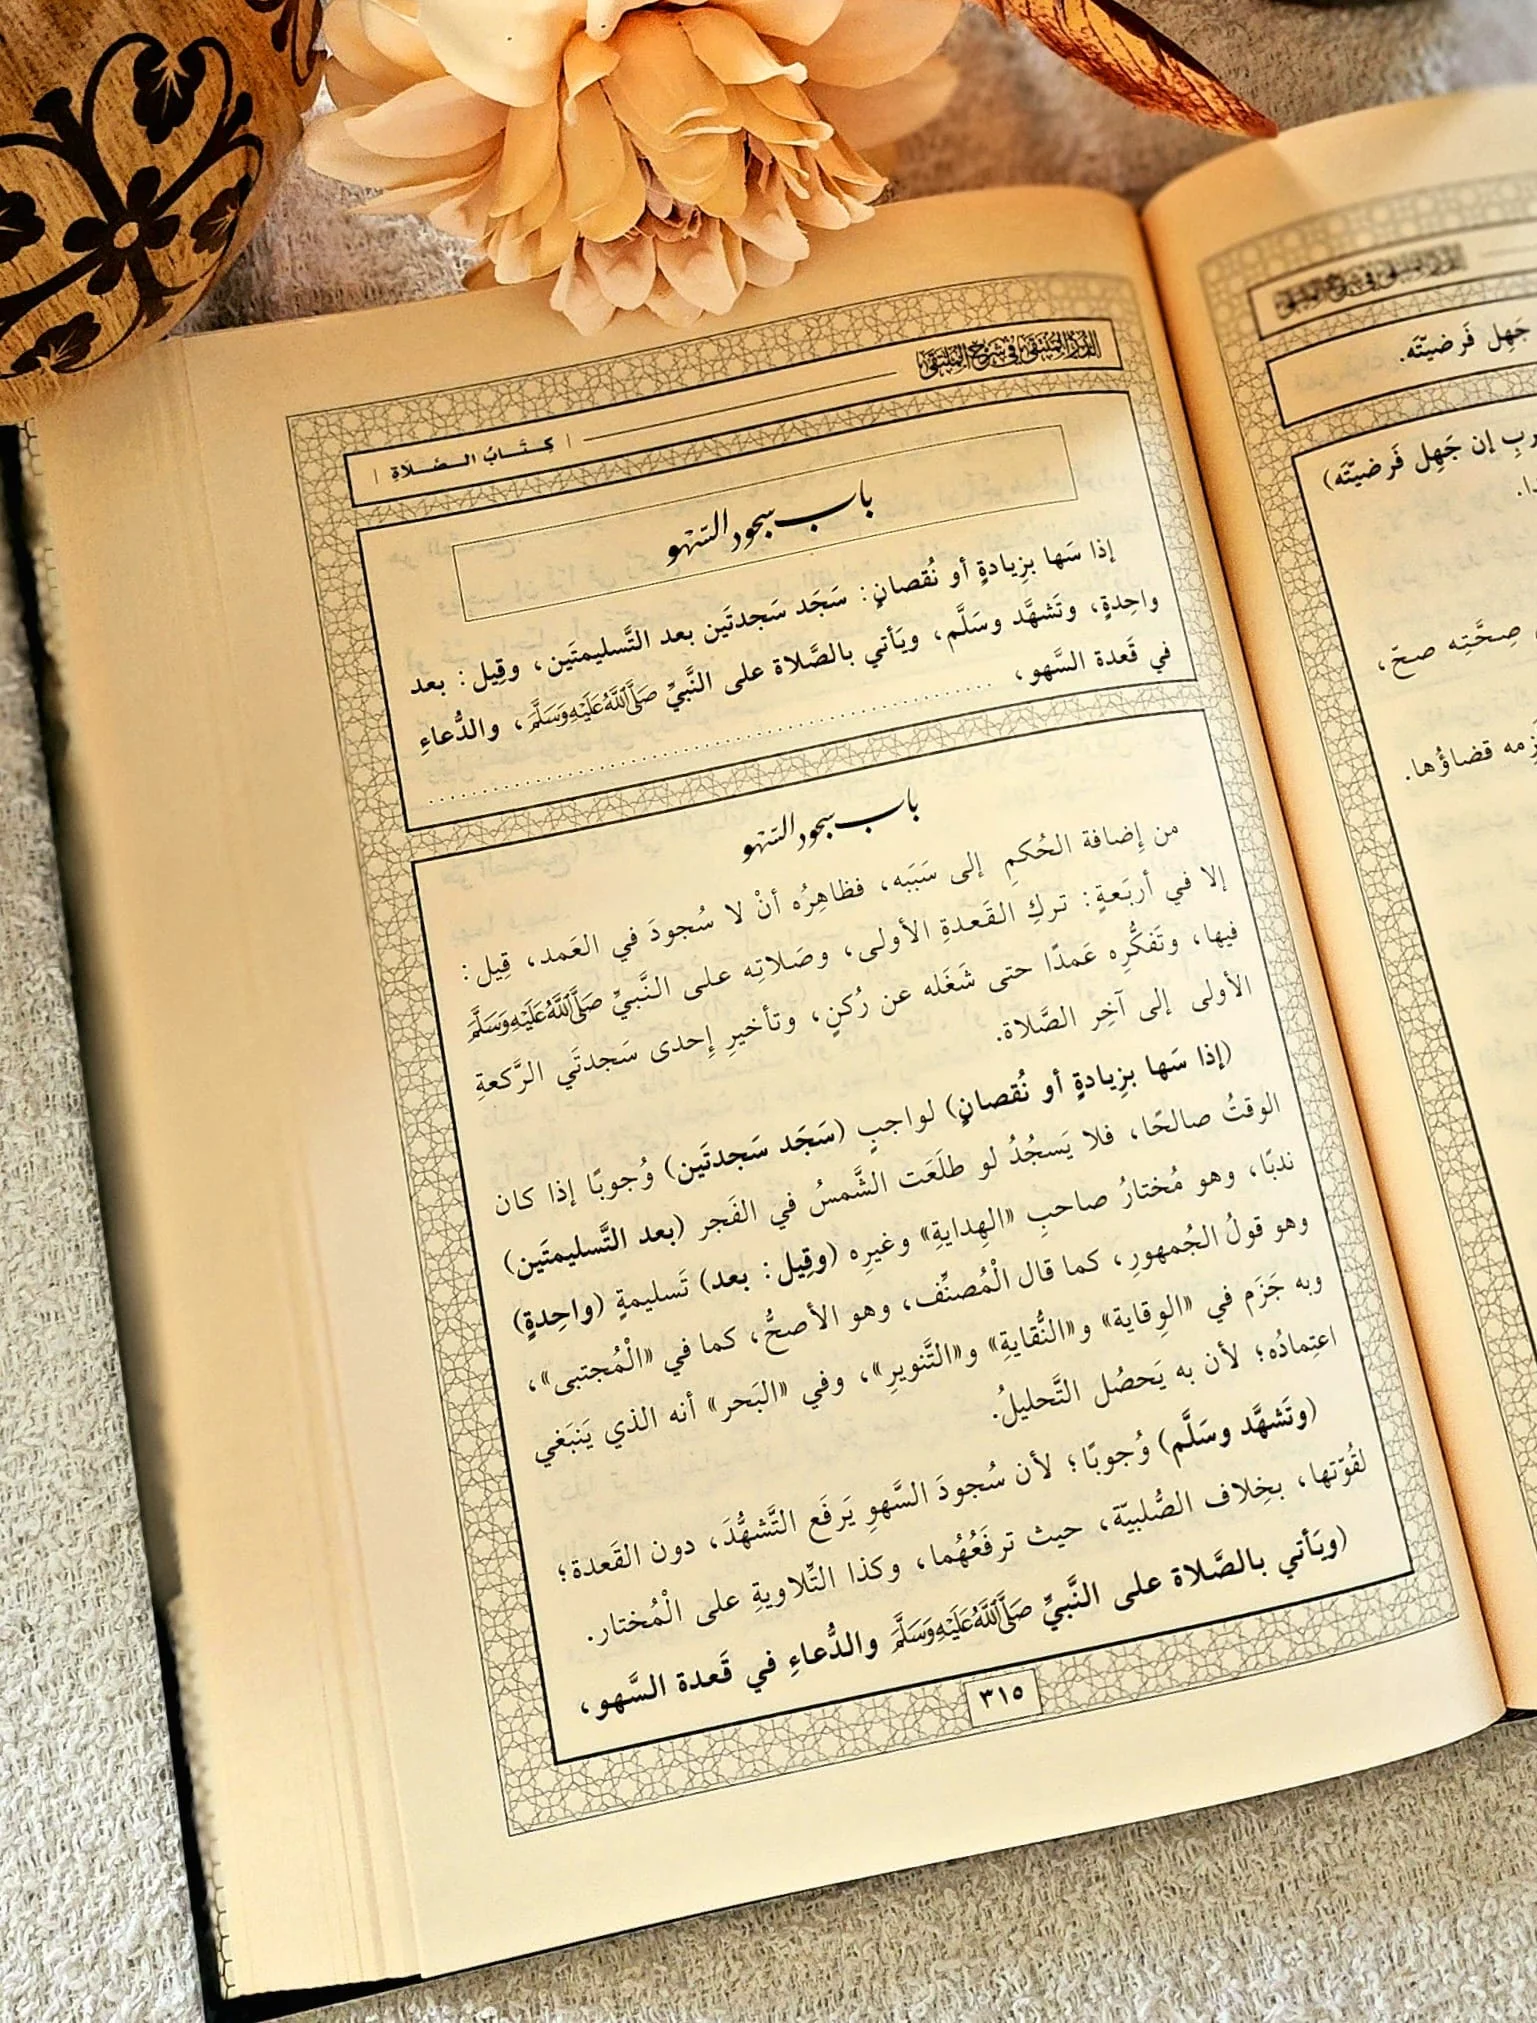 الدر المنتقى في شرح الملتقى
| كِتَابُ الصَّلَاةِ |
باب سجود السهو
إذا سَها بزِيادةٍ أو نُقصانٍ: سَجَد سَجدتَين بعد التَّسليمتَين، وقِيل: بعد
واحِدةٍ، وتَشهَّد وسَلَّم، ويَأتي بالصَّلاة على النَّبيِّ صَلَّى اللَّهُ عَلَيْهِ وَسَلَّمَ، والدُّعاءِ
في قَعدة السَّهو،
باب سجود السهو
من إضافة الحُكمِ إلى سَبَبه، فظاهِرُه أنْ لا سُجودَ في العَمد، قِيل:
إلا في أربَعةٍ: تركِ القَعدةِ الأولى، وصَلاتِه على النَّبيِّ صَلَّى اللَّهُ عَلَيْهِ وَسَلَّمَ
فيها، وتَفكُّرِه عَمدًا حتى شَغَله عن رُكنٍ، وتأخيرِ إحدى سَجدتَي الرَّكعةِ
الأولى إلى آخِر الصَّلاة.
(إذا سَها بزِيادةٍ أو نُقصانٍ) لواجبٍ (سَجَد سَجدتَين) وُجوبًا إذا كان
الوقتُ صالحًا، فلا يَسجُدُ لو طلَعَت الشَّمسُ في الفَجر (بعد التَّسليمتَين)
ندبًا، وهو مُختارُ صاحبِ «الهِدايةِ» وغيرِه (وقِيل: بعد) تَسليمةٍ (واحِدةٍ)
وهو قولُ الجُمهورِ، كما قال الْمُصنِّف، وهو الأصحُّ، كما في «الْمُجتبى»،
وبه جَزَم في «الوِقاية» و«النُّقايةِ» و«التَّنويرِ»، وفي «البَحر» أنه الذي يَنبَغي
اعتِمادُه؛ لأن به يَحصُل التَّحليلُ.
(وتَشهَّد وسَلَّم) وُجوبًا؛ لأن سُجودَ السَّهوِ يَرفَع التَّشهُّدَ، دون القَعدة؛
لقُوّتها، بخِلاف الصُّلبيّة، حيث ترفَعُهُما، وكذا التِّلاويةِ على الْمُختار.
(ويَأتي بالصَّلاة على النَّبيِّ صَلَّى اللَّهُ عَلَيْهِ وَسَلَّمَ والدُّعاءِ في قَعدة السَّهو،
٣١٥
الدر المنتقى في شرح الملتقى
جَهِل فَرضيّتَه.
إن جَهِل فَرضيّتَه)
صِحَّتِه صحّ،
قضاؤُها.